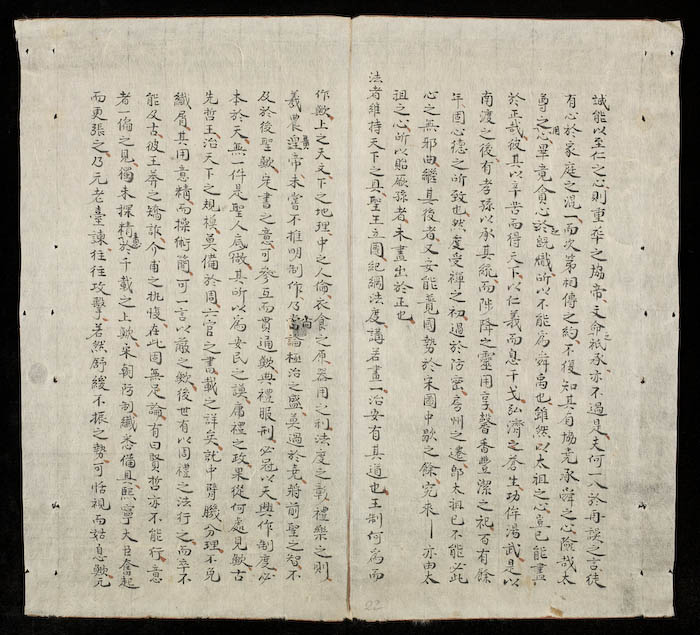 誠能以至仁之心則重華之協帝文命祗承亦不過是夫何一入於再誤之言徒
有心於家庭之混一而次第相傳之約不復知其有協堯承舜之心險哉太
尊之心畢竟貪心於既熾所以不能為舜禹也雖然以太祖之心豈已能盡
於正哉彼其以辛苦而得天下以仁義而息干戈弘濟之蒼生功侔湯武是以
南渡之後有孝孫以承其統而陟降之靈用享馨香豐潔之祀百有餘
年固心德之所致也然虔受禪之初過於防密房州之遷郎太祖已不能必此
心之無邪曲繼其後者又安能責國勢於宋國中歇之餘究來亦由太
祖之心所以貽厥孫者未盡出於正也
法者維持天下之具聖王立國紀綱法度講若畫一治安有其道也王制何為而
作歟上之天文下之地理中之人倫衣食之原器用之利法度之彰禮樂之則
羲農皇帝未嘗不推明制作乃尚論極治之盛莫過於堯蔣前聖之智不
及於後聖歟先書之意可參互而貫通歟典禮服刑必冠以天與作制度必
本於天無一件是聖人底倣其所以為安民之謨庸禮之政果從何處見歟古
先哲王治天下之規模莫備於周六官之書載之詳矣就中臂膸分理不免
纖屑其用意精而操術簡可一言以蔽之歟後世有以周禮之法行之而卒不
能及古彼王莽之矯詐介甫之執愎在此固無足論有曰賢哲亦不能行意
者一偏之見獨未探精意於千載之上歟宋朝防制纖悉備具熙寧大臣奮起
而更張之乃元老臺諫往往攻擊若然舒緩不振之勢可恬視而姑息歟元
22